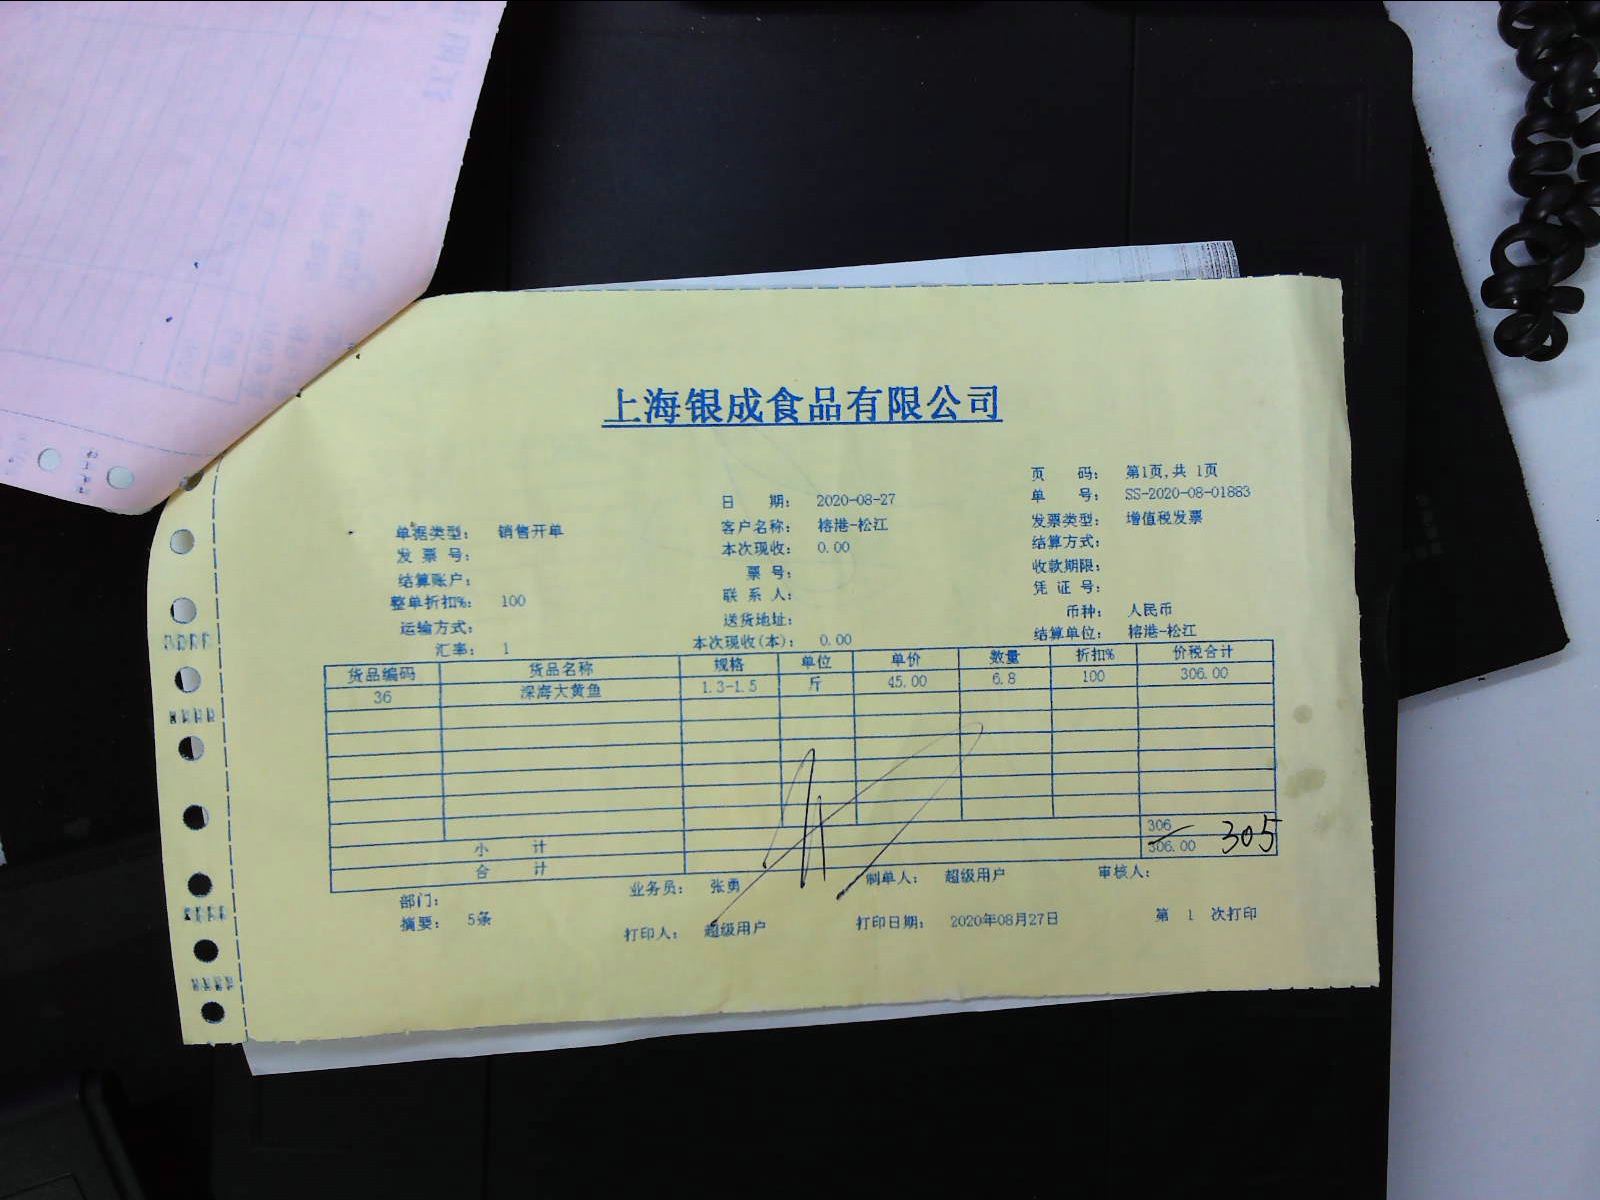 上海银成食品有限公司
页 码： 第1页,共 1页
日 期： 2020-08-27 单 号： SS-2020-08-01883
单据类型： 销售开单 客户名称： 榕港-松江 发票类型： 增值税发票
发 票 号： 本次现收： 0.00 结算方式：
结算账户： 票 号： 收款期限：
整单折扣%： 100 联 系 人： 凭 证 号：
运输方式： 送货地址： 币种： 人民币
汇率： 1 本次现收(本)： 0.00 结算单位： 榕港-松江
货品编码 货品名称 规格 单位 单价 数量 折扣% 价税合计
36 深海大黄鱼 1.3-1.5 斤 45.00 6.8 100 306.00
小 计 306
合 计 306.00 305
部门： 业务员： 张勇 制单人： 超级用户 审核人：
摘要： 5条 打印人： 超级用户 打印日期： 2020年08月27日 第 1 次打印